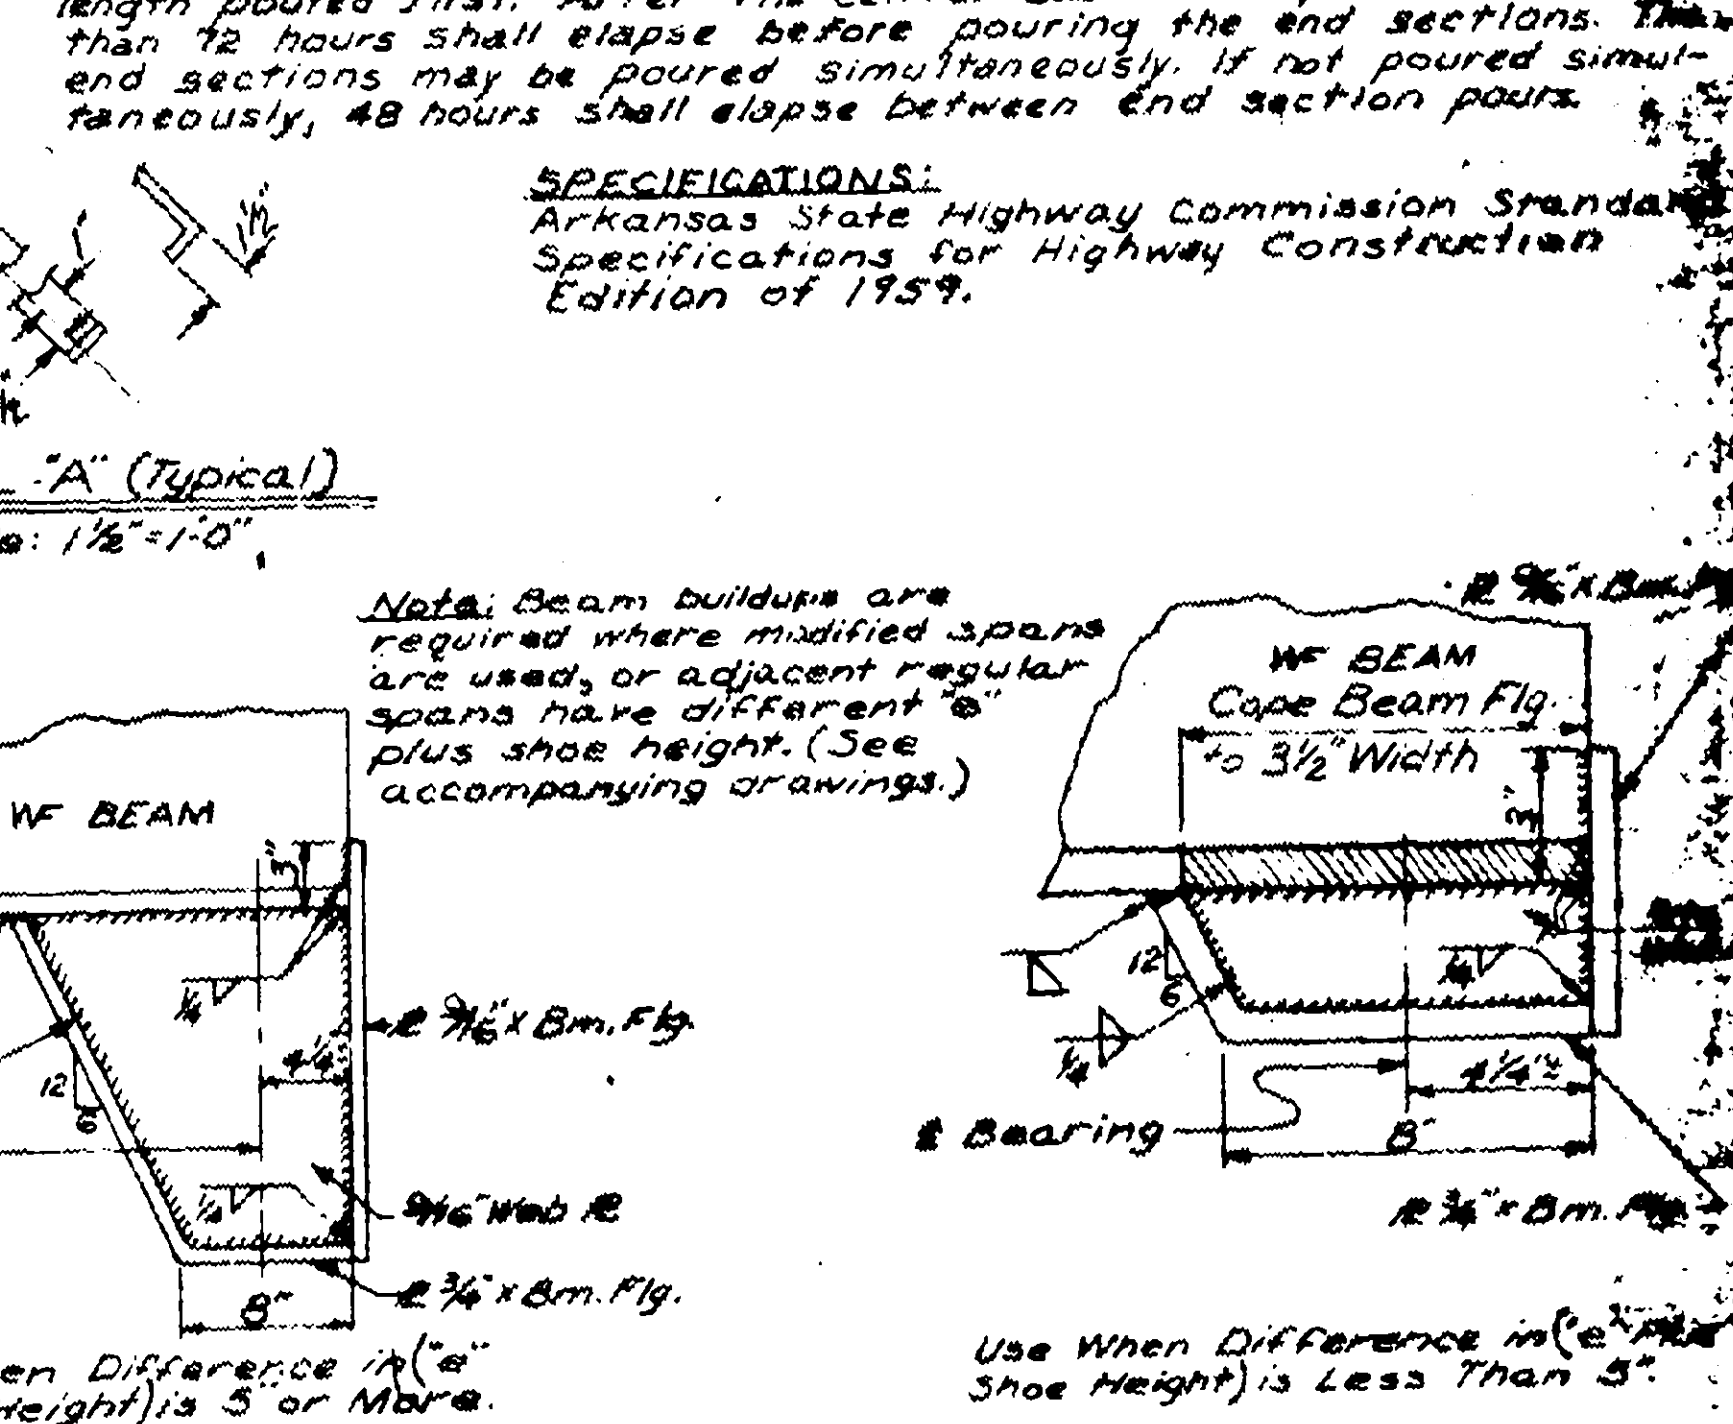 length poured first. After the
than 72 hours shall elapse before pouring the end sections. The
end sections may be poured simultaneously. If not poured simul-
taneously, 48 hours shall elapse between end section pours.
SPECIFICATIONS:
Arkansas State Highway Commission Standard
Specifications for Highway Construction
Edition of 1959.
"A" (Typical)
: 1½"=1'-0"
Note: Beam buildups are
required where modified spans
are used, or adjacent regular
spans have different "e"
plus shoe height. (See
accompanying drawings.)
WF BEAM
3"
¼
4¼"
12
6
℄ 9/16" x Bm. Flg.
¼
9/16" Web ℄
℄ ¾" x Bm. Flg.
8"
en Difference in ("e"
Height) is 5" or More.
9/16" x Bm.
WF BEAM
Cope Beam Flg.
to 3½" Width
3"
12
6
¼
¼
4¼"±
℄ Bearing
8"
¾" x Bm.
Use When Difference in ("e" Plus
Shoe Height) is Less Than 5".